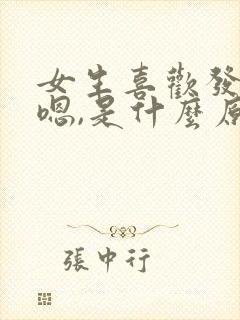 女生喜歡發
嗯,是什麼原
張中行